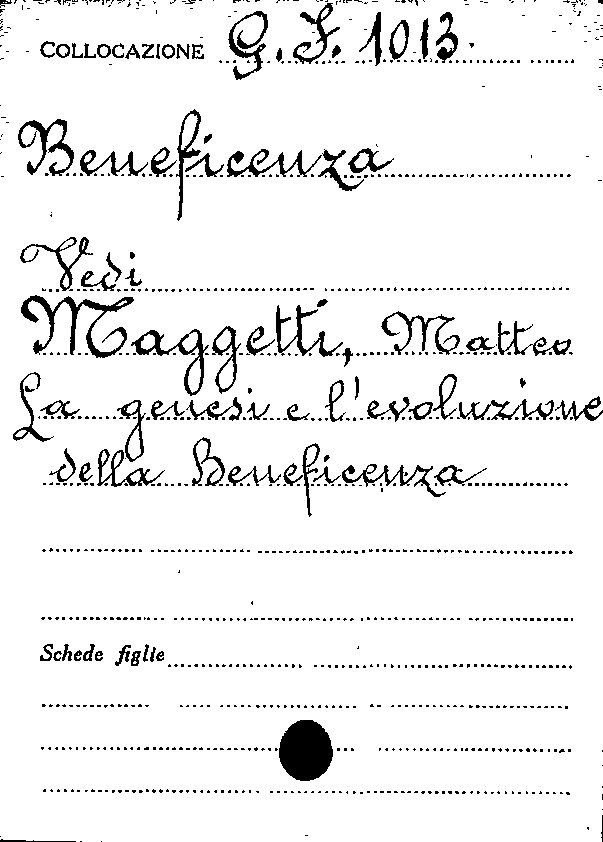 COLLOCAZIONE G. F. 1013.
Beneficenza
Vedi
Maggetti, Matteo
La genesi e l'evoluzione
della Beneficenza
Schede figlie